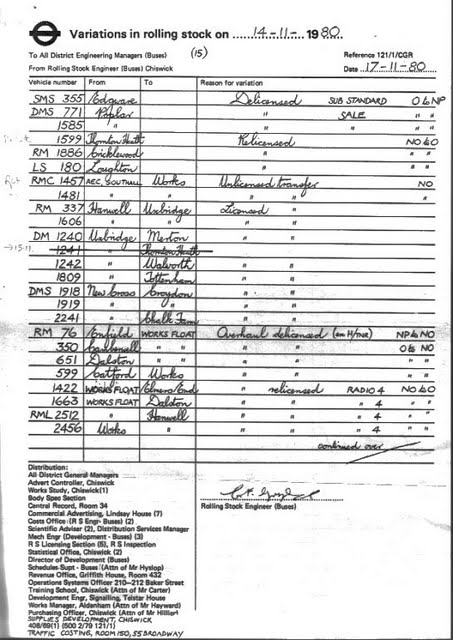 Variations in rolling stock on 14-11- 1980
To All District Engineering Managers (Buses) (15) Reference 121/1/CGR
From Rolling Stock Engineer (Buses) Chiswick Date 17-11-80
Vehicle number From To Reason for variation
SMS 355 Edgware Delicensed SUB STANDARD O to NP
DMS 771 Poplar " SALE " "
1585 " " " " "
1599 Thornton Heath Relicensed NO to O
RM 1886 Cricklewood " " "
LS 180 Loughton " " "
RMC 1457 AEC. SOUTHALL Works Unlicensed transfer NO
1481 " " " " "
RM 337 Hanwell Uxbridge Licensed "
1606 " " " "
DM 1240 Uxbridge Merton " "
→15.11. 1241 " Thornton Heath
1242 " Walworth " "
1809 " Tottenham " "
DMS 1918 New Cross Croydon " "
1919 " " " "
2241 " Chalk Farm " "
RM 76 Enfield WORKS FLOAT Overhaul delicensed NP to NO
350 Camberwell " " " " O to NO
651 Dalston " " " " " "
599 Catford Works " " " "
1422 WORKS FLOAT Elmers End " relicensed RADIO 4 NO to O
1663 WORKS FLOAT Dalston " " " 4 " "
RML 2512 " Hanwell " " " 4 " "
2456 Works " " " " 4 " "
continued over
Distribution:
All District General Managers
Advert Controller, Chiswick
Works Study, Chiswick(1)
Body Spec Section
Central Record, Room 34
Commercial Advertising, Lindsay House (7)
Costs Office:(R S Engr- Buses) (2)
Scientific Adviser (2), Distribution Services Manager
Mech Engr (Development - Buses) (3)
R S Licensing Section (5), R S Inspection
Statistical Office, Chiswick (2)
Director of Development (Buses)
Schedules Supt - Buses (Attn of Mr Hyslop)
Revenue Office, Griffith House, Room 432
Operations Systems Officer 210-212 Baker Street
Training School, Chiswick (Attn of Mr Carter)
Development Engr, Signalling, Telstar House
Works Manager, Aldenham (Attn of Mr Hayward)
Purchasing Officer, Chiswick (Attn of Mr Hillier)
SUPPLIES DEVELOPMENT, CHISWICK
408/69(1) (500 2/79 121/1)
TRAFFIC COSTING, ROOM 150, 55 BROADWAY
Rolling Stock Engineer (Buses)